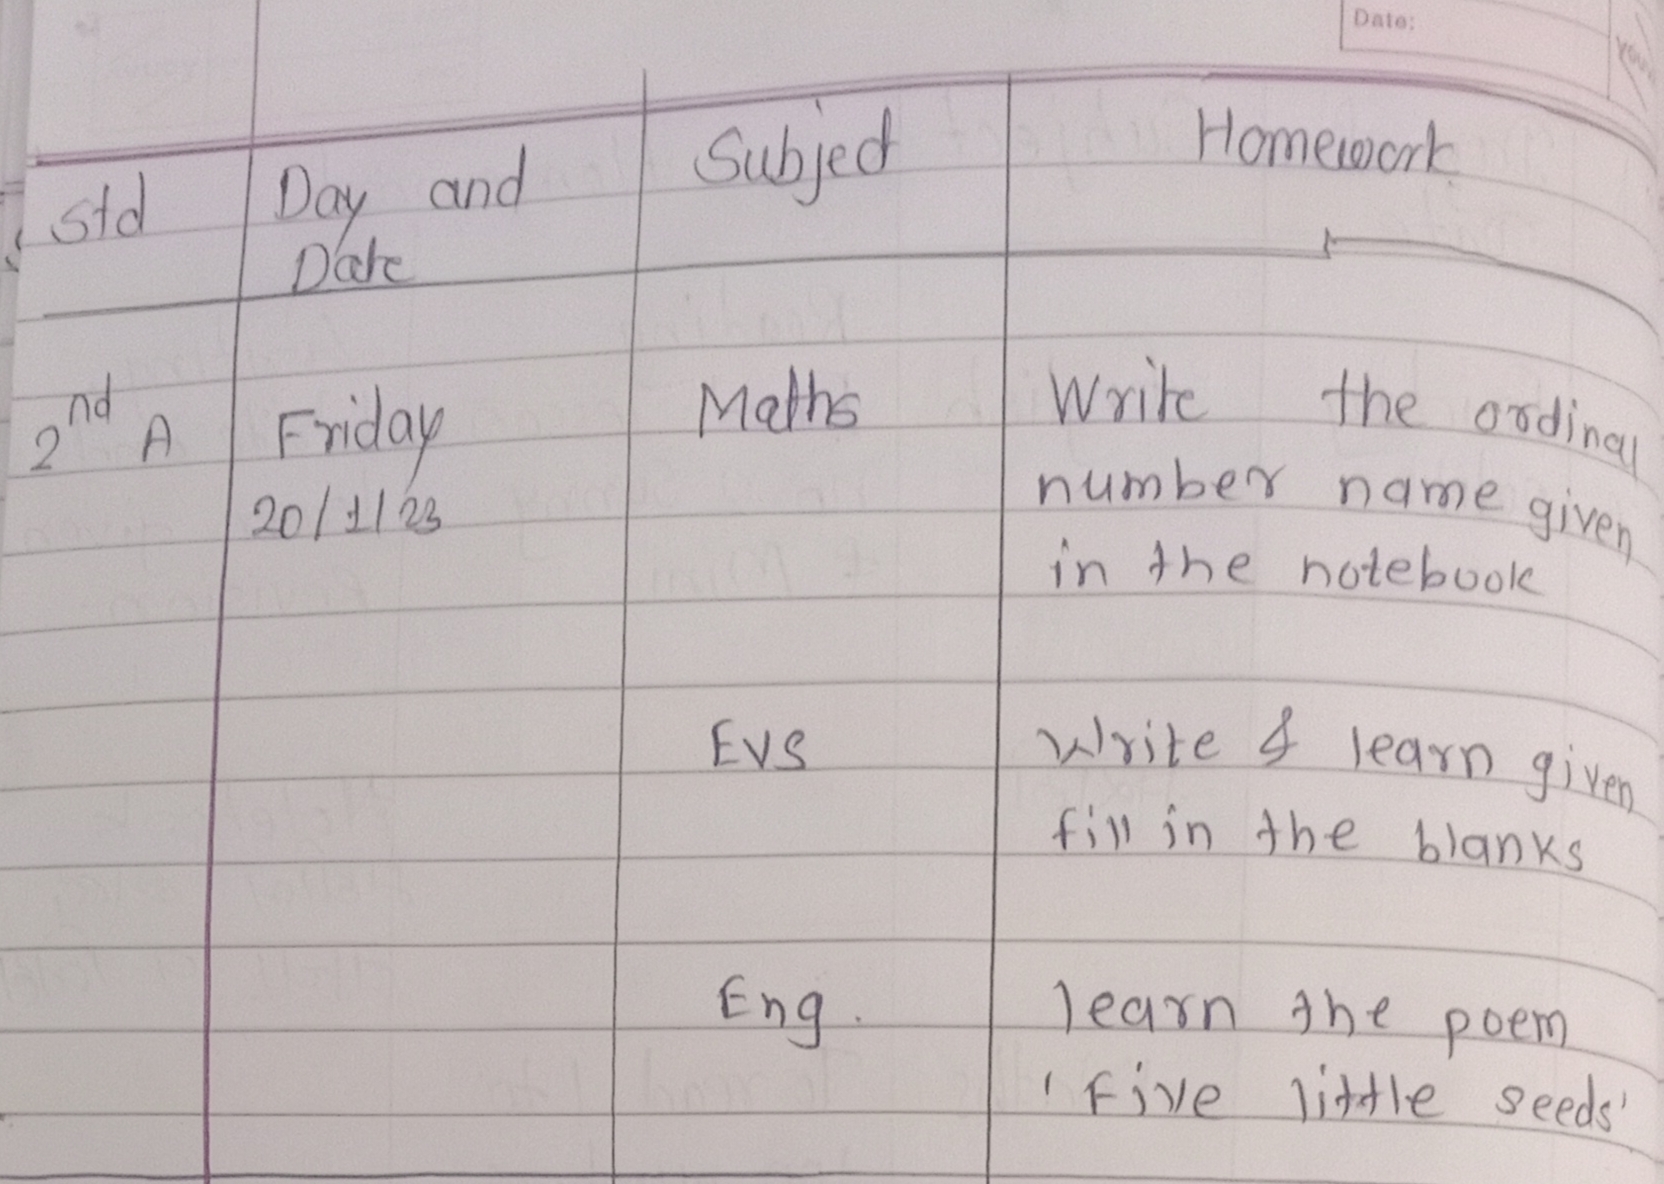 Date:
Std
Day and
Date
Subject
Homework
2nd A
Friday
20/1/23
Maths
Write the ordinal
number name given
in the notebook
EVS
Write & learn given
fill in the blanks
Eng.
learn the poem
'Five little seeds'